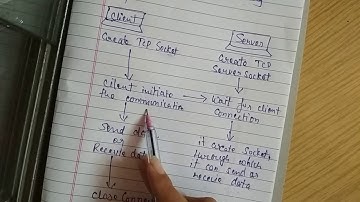 Client
Create TCP Socket
Client initiate
the communication
Send da
or
Receive data
Close Conn
Server
Create TCP
Server Socket
Wait for client
Connection
it create Socket
through which
it can send or
receive data